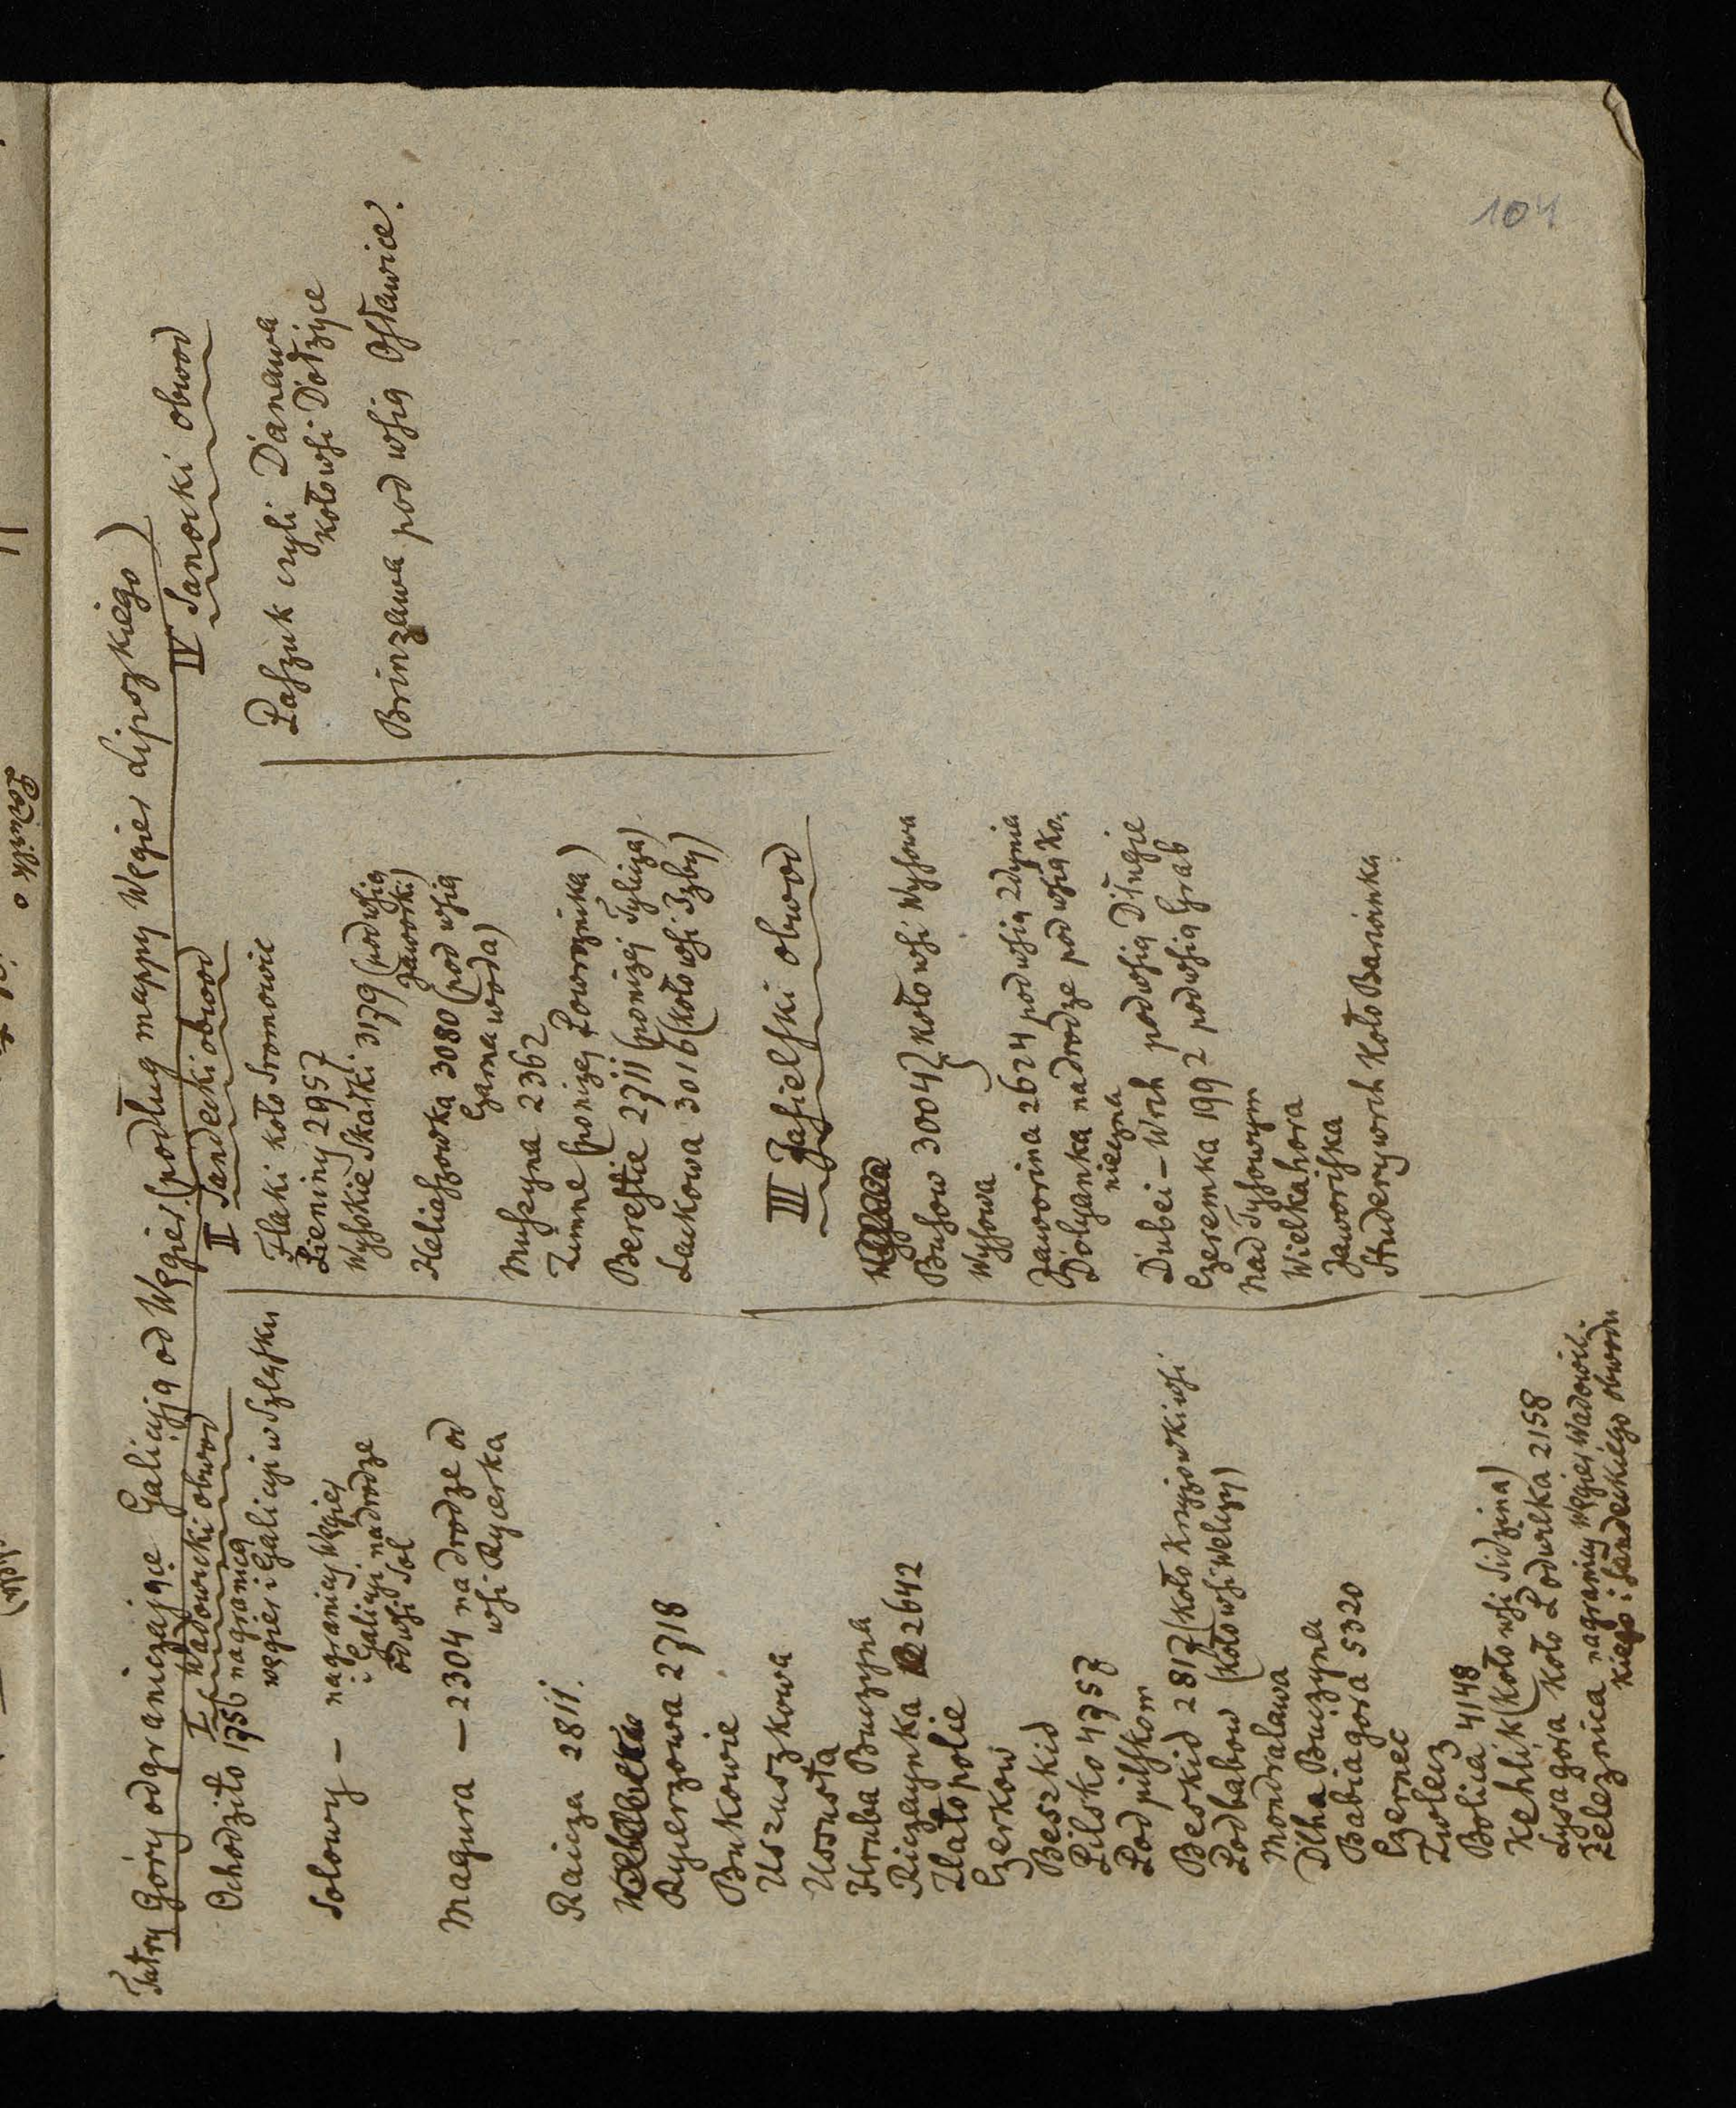 Tatry Góry odgraniczające Galicyją od Węgier (podług mappy Węgier Lipszkiego)
I Wadowicki obwod
Ochodzito 1756 na granicą
węgier i Galicyi w Szląsku
Solowy — na granicy Węgier
i Galicyi na drodze
od wsi Sol
Magura — 2304 na drodze od
wsi Rycerka
Raicza 2811.
Rycerzowa 2718
Bukowie
Uszuszkowa
Ussusta
Hruba Buczyna
Riczaynka 2642
Zlatopolie
Czerkow
Beszkid
Pilsko 4757
Pod pilskom
Beskid 2817 (koło Krzyżowki wsi
Podbabow (koło wsi Welizy)
Mondralawa
Dlha Buczyna
Babia gora 5320
Czernec
Zwolez
Bolica 4148
Kehlik (koło wsi Sidzina)
Lysa gora koło Podwilka 2158
Zeleznica na granicy Węgier, Wadowic-
kiego i Sandeckiego obwodu
II Sandecki obwod
Flaki koło Sromowic
Pieniny 2957
Wysokie Skałki 3179 (pod wsią
Jaworki)
Heliaszowka 3080 (pod wsią
Czarna woda)
Muszyna 2362
Zimne (poniżej Powroznika)
Berestie 2711 (poniżej Tylicza)
Laukowa 3016 (koło wsi Izby)
III Jasielski obwod
Busow 3004 } koło wsi Wysowa
Wysowa
Jaworina 2624 pod wsią Zdynia
Dolyanka na drodze pod wsią Ko-
nieczna
Dubei-Wrh pod wsią Długie
Czeremka 1992 pod wsią Grab
Nad Tysowym
Wielkahora
Jaworiska
Studeny wrch koło Baninka
IV Sanocki obwod
Paszuk czyli Danawa
koło wsi Dołżyce
Brinzawa pod wsią Osławice.
104